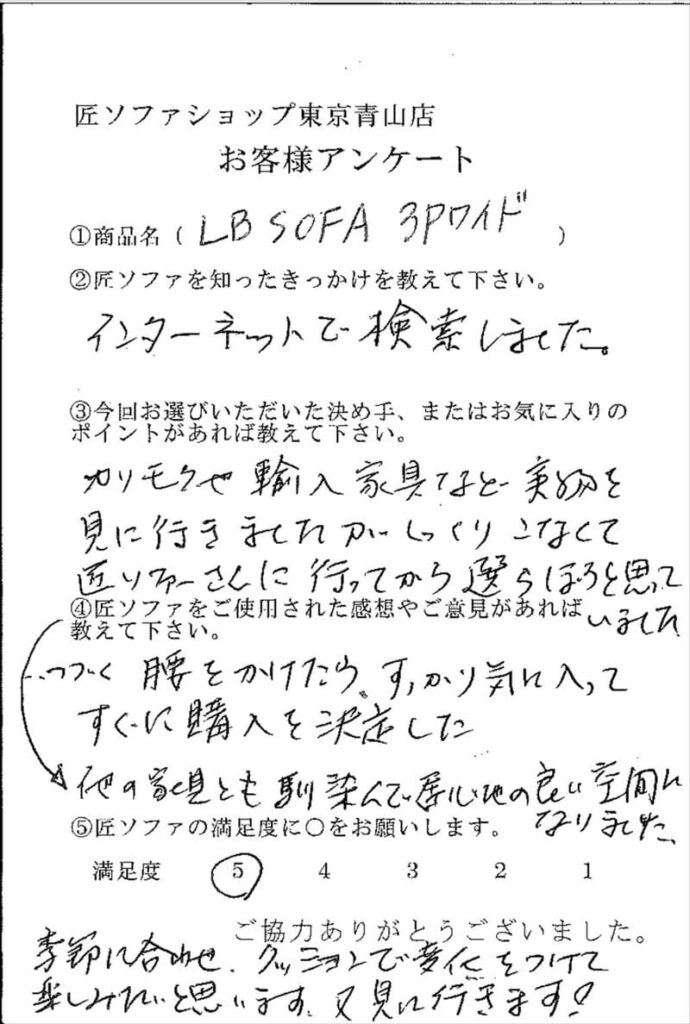 匠ソファショップ東京青山店
お客様アンケート
①商品名（ LB SOFA 3Pワイド ）
②匠ソファを知ったきっかけを教えて下さい。
インターネットで検索しました。
③今回お選びいただいた決め手、またはお気に入りの
ポイントがあれば教えて下さい。
カリモクや輸入家具など実物を
見に行きましたがしっくりこなくて
匠ソファーさんに行ってから選らぼうと思って
いました
④匠ソファをご使用された感想やご意見があれば
教えて下さい。
…つづく 腰をかけたら、すっかり気に入って
すぐに購入を決定した
他の家具とも馴染んで居心地の良い空間に
なりました
⑤匠ソファの満足度に○をお願いします。
満足度 5 4 3 2 1
ご協力ありがとうございました。
季節に合わせ、クッションで変化をつけて
楽しみたいと思います、又見に行きます!